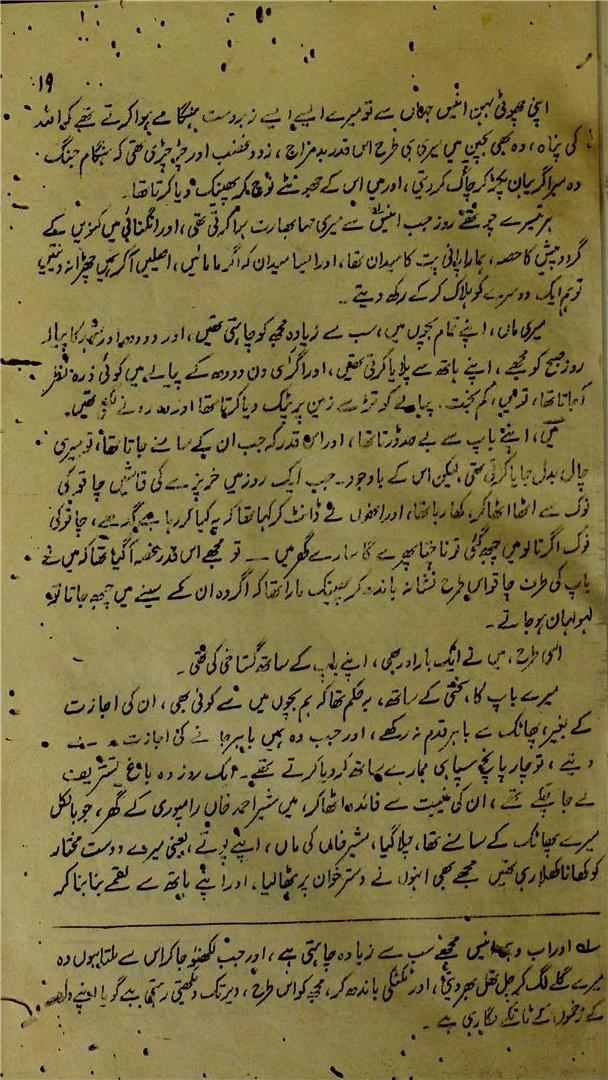 ۱۹
اپنی چھوٹی بہن انیس جہاں سے تو میرے ایسے ایسے زبردست ہنگامے ہوا کرتے تھے کہ اللہ
کی پناہ، وہ بھی بچپن میں میری ہی طرح اس قدر بد مزاج، زود غضب اور چڑچڑی تھی کہ ہنگام جنگ
وہ میرا گریبان پکڑ کر چاک کر دیتی، اور میں اس کے جھونٹے نوچ کر پھینک دیا کرتا تھا۔
ہر تیسرے چوتھے روز جب انیس سے میری مہا بھارت ہوا کرتی تھی، اور انگنائی میں کنویں کے
گرد و پیش کا حصہ، ہمارا پانی پت کا میدان تھا، اور ایسا میدان کہ اگر مامائیں، اصیلیں آ کر ہمیں چھڑا نہ دیتیں
تو ہم ایک دوسرے کو ہلاک کر کے رکھ دیتے۔
میری ماں، اپنے تمام بچوں میں، سب سے زیادہ مجھے کو چاہتی تھیں، اور دودھ اور شہد کا پیالہ
روز صبح کو مجھے، اپنے ہاتھ سے پلایا کرتی تھیں، اور اگر کسی دن دودھ کے پیالے میں کوئی ذرہ نظر
آ جاتا تھا، تو میں، کم بخت، پیالے کو تڑ سے زمین پر پٹک دیا کرتا تھا اور وہ رونے لگتی تھیں۔
میں، اپنے باپ سے بے حد ڈرتا تھا، اور اس قدر کہ جب ان کے سامنے جاتا تھا، تو میری
چال بدل جایا کرتی تھی، لیکن اس کے باوجود۔ جب ایک روز میں خربزے کی قاشیں چاقو کی
نوک سے اٹھا اٹھا کر، کھا رہا تھا، اور انھوں نے ڈانٹ کر کہا تھا کہ یہ کیا کر رہا ہے گدھے، چاقو کی
نوک اگر تالو میں چبھ گئی تو ناچتا پھرے گا سارے گھر میں — تو مجھے اس قدر غصہ آ گیا تھا کہ میں نے
باپ کی طرف چاقو اس طرح نشانہ باندھ کر پھینک مارا تھا کہ اگر وہ ان کے سینے میں چبھ جاتا تو وہ
لہو لہان ہو جاتے۔
اسی طرح، میں نے ایک بار اور بھی، اپنے باپ کے ساتھ گستاخی کی تھی۔
میرے باپ کا، سختی کے ساتھ، یہ حکم تھا کہ ہم بچوں میں سے کوئی بھی، ان کی اجازت
کے بغیر، پھاٹک سے باہر قدم نہ رکھے، اور جب وہ ہمیں باہر جانے کی اجازت
دیتے، تو چار پانچ سپاہی ہمارے ساتھ کر دیا کرتے تھے۔ ایک روز وہ باغ تشریف
لے جا چکے تھے، ان کی غیبت سے فائدہ اٹھا کر، میں شبیر احمد خاں رامپوری کے گھر، جو بالکل
میرے پھاٹک کے سامنے تھا، چلا گیا، شبیر خاں کی ماں، اپنے پوتے، یعنی میرے دوست مختار
کو کھانا کھلا رہی تھیں مجھے بھی انہوں نے دستر خوان پر بٹھا لیا، اور اپنے ہاتھ سے لقمے بنا بنا کر
؎ اور اب وہی انیس مجھے سب سے زیادہ چاہتی ہے، اور جب لکھنؤ جا کر اس سے ملتا ہوں وہ
میرے گلے لگ کر جل تھل بھر دیتی، اور ٹکٹکی باندھ کر، مجھ کو اس طرح، دیر تک دیکھتی رہتی ہے گویا اپنے دل
کے زخموں کے ٹانکے لگا رہی ہے۔